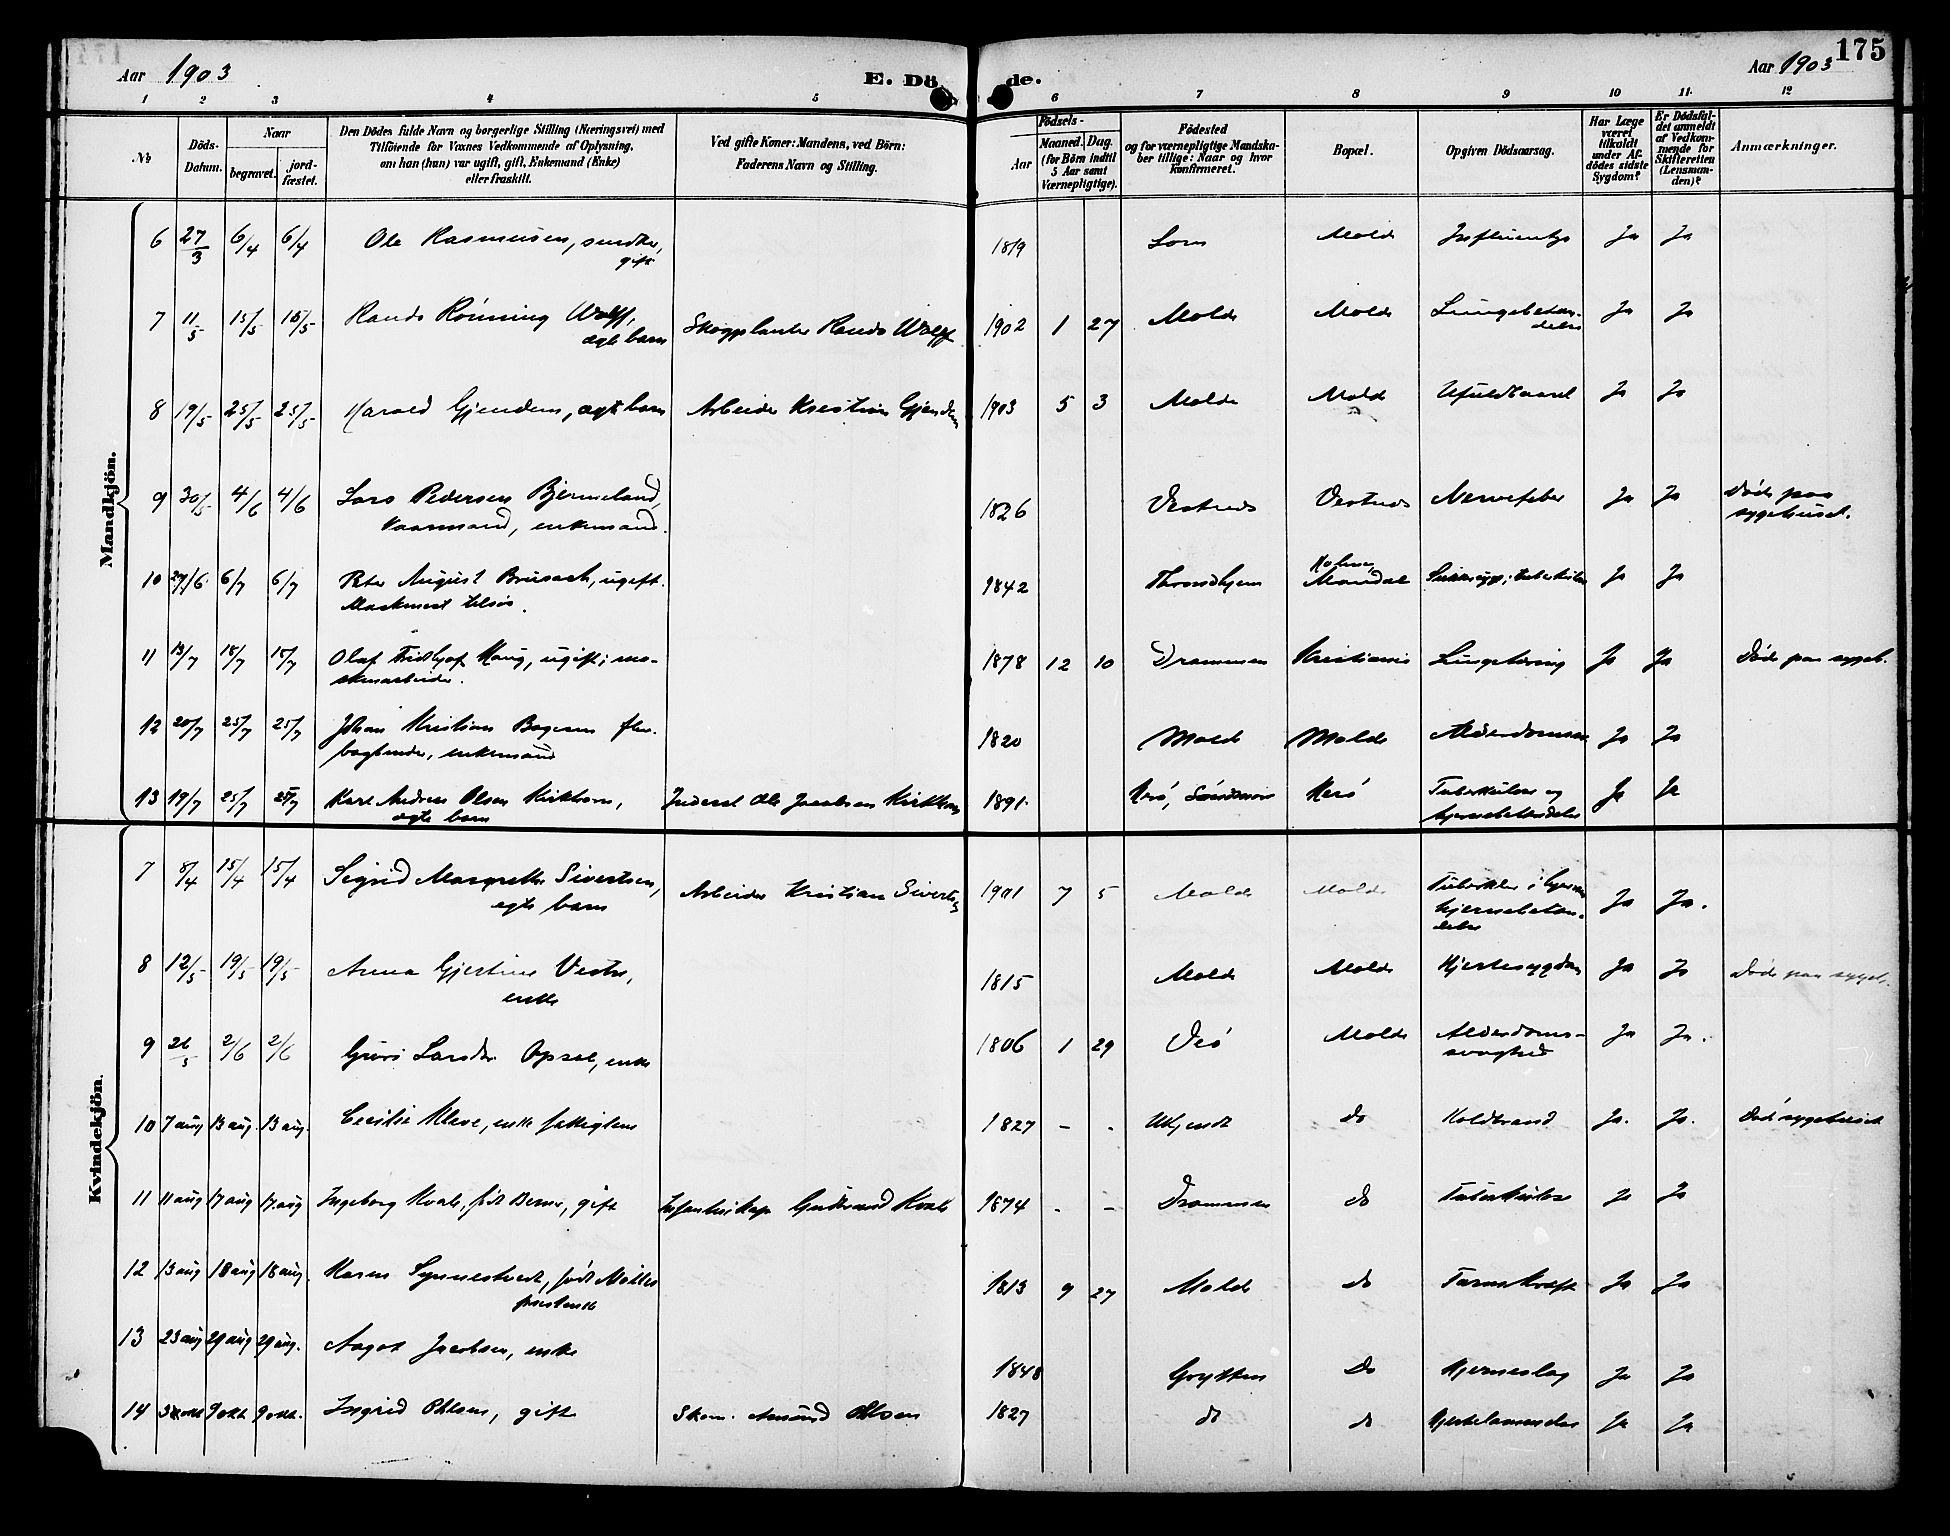 175
Aar 1903
E. Dö de.
Aar 1903
1 2 3 4 5 6 7 8 9 10 11 12
No
Döds-Datum.
Naar
begravet.
jord-fæstet.
Den Dödes fulde Navn og borgerlige Stilling (Næringsvei) med
Tilföiende for Voxnes Vedkommende af Oplysning,
om han (hun) var ugift, gift, Enkemand (Enke)
eller fraskilt.
Ved gifte Koner: Mandens, ved Börn:
Faderens Navn og Stilling.
Födsels-
Aar
Maaned. Dag.
(for Börn indtil
5 Aar samt
Værnepligtige).
Födested
og for værnepligtige Mandska-
ber tillige: Naar og hvor
konfirmeret.
Bopæl.
Opgiven Dödsaarsag.
Har Læge
været
tilkaldt
under Af-
dödes sidste
Sygdom?
Er Dödsfal-
det anmeldt
af Vedkom-
mende for
Skifteretten
(Lensman-
den)?
Anmærkninger.
Mandkjön.
6 27/3 6/4 6/4 Ole Rasmussen, gift 1819 Lom Molde Influentza Ja Ja
7 11/5 15/5 15/5 Rands Rönning Wolff, ægte barn Skogplanter Rands Wolff 1902 1 27 Molde Molde Lungebetændelse Ja Ja
8 19/5 25/5 25/5 Harald Gjendem, ægte barn Arbeider Kristian Gjendem 1903 5 3 Molde Molde Ufuldbaaret Ja Ja
9 30/5 4/6 4/6 Lars Pedersen Bjermeland, kaarmand, enkemand. 1826 Vestnes Vestnes Nervefeber Ja Ja Döde paa sygehuset.
10 6/7 6/7 Peter August Brusach, ugift. 1842 Throndhjem Mandal Ja Ja
11 13/7 18/7 18/7 Olaf Fridthjof Haug, ugift; maskinarbeider. 1878 12 10 Drammen Kristiania Lungetæring Ja Ja Döde paa sygeh.
12 20/7 25/7 25/7 Johan Kristian enkemand 1820 Molde Molde Ja Ja
13 19/7 25/7 25/7 Karl Andreas Olsen Kirkhorn, ægte barn Inderst Ole Jacobsen Kirkhorn 1891 Herö, Söndmör Herö Tuberkulose og hjernebetændelse Ja Ja
Kvindekjön.
7 8/4 15/4 15/4 Sigrid Margrethe Sivertsen, ægte barn Arbeider Kristian Sivertsen 1901 7 5 Molde Molde Tuberkler i hjernebetændelse Ja Ja.
8 12/5 19/5 19/5 Anna Gjertine enke 1815 Molde Molde Hjertesygdom Ja Ja Döde paa sygeh.
9 26/5 2/6 2/6 Guri Larsdtr Opsal, enke 1806 1 29 Veö Molde Alderdoms-svaghed Ja Ja.
10 7 aug 13 aug. 13 aug. Cecilie Kleve, enke fattiglem 1827 - - Ukjendt do Koldbrand Ja. Ja.
11 11 aug 17 aug 17 aug Ingeborg Kvale, född gift Gudbrand Kvale 1874 - - Drammen do Tuberkulose Ja Ja
12 13 aug 18 aug 18 aug. Karen Synnestvedt, född Möller prestenke 1813 9 27 Molde do Tarmkræft Ja Ja
13 23 aug 29 aug 29 aug. Aagot Jacobsen, enke 1848 Grytten Do Hjerneslag Ja Ja
14 3 okt 9 okt. 9 okt. Ingrid Ohlsen, gift Skom. Amund Ohlsen 1827 do do Hjertelammelse Ja Ja